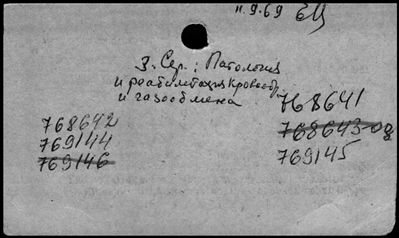 11.9.69 ЕЦ
3. Сер.: Патология
и реабилитация кровообр.
и газообмена
768642
769144
769146
768641
768643 од
769145